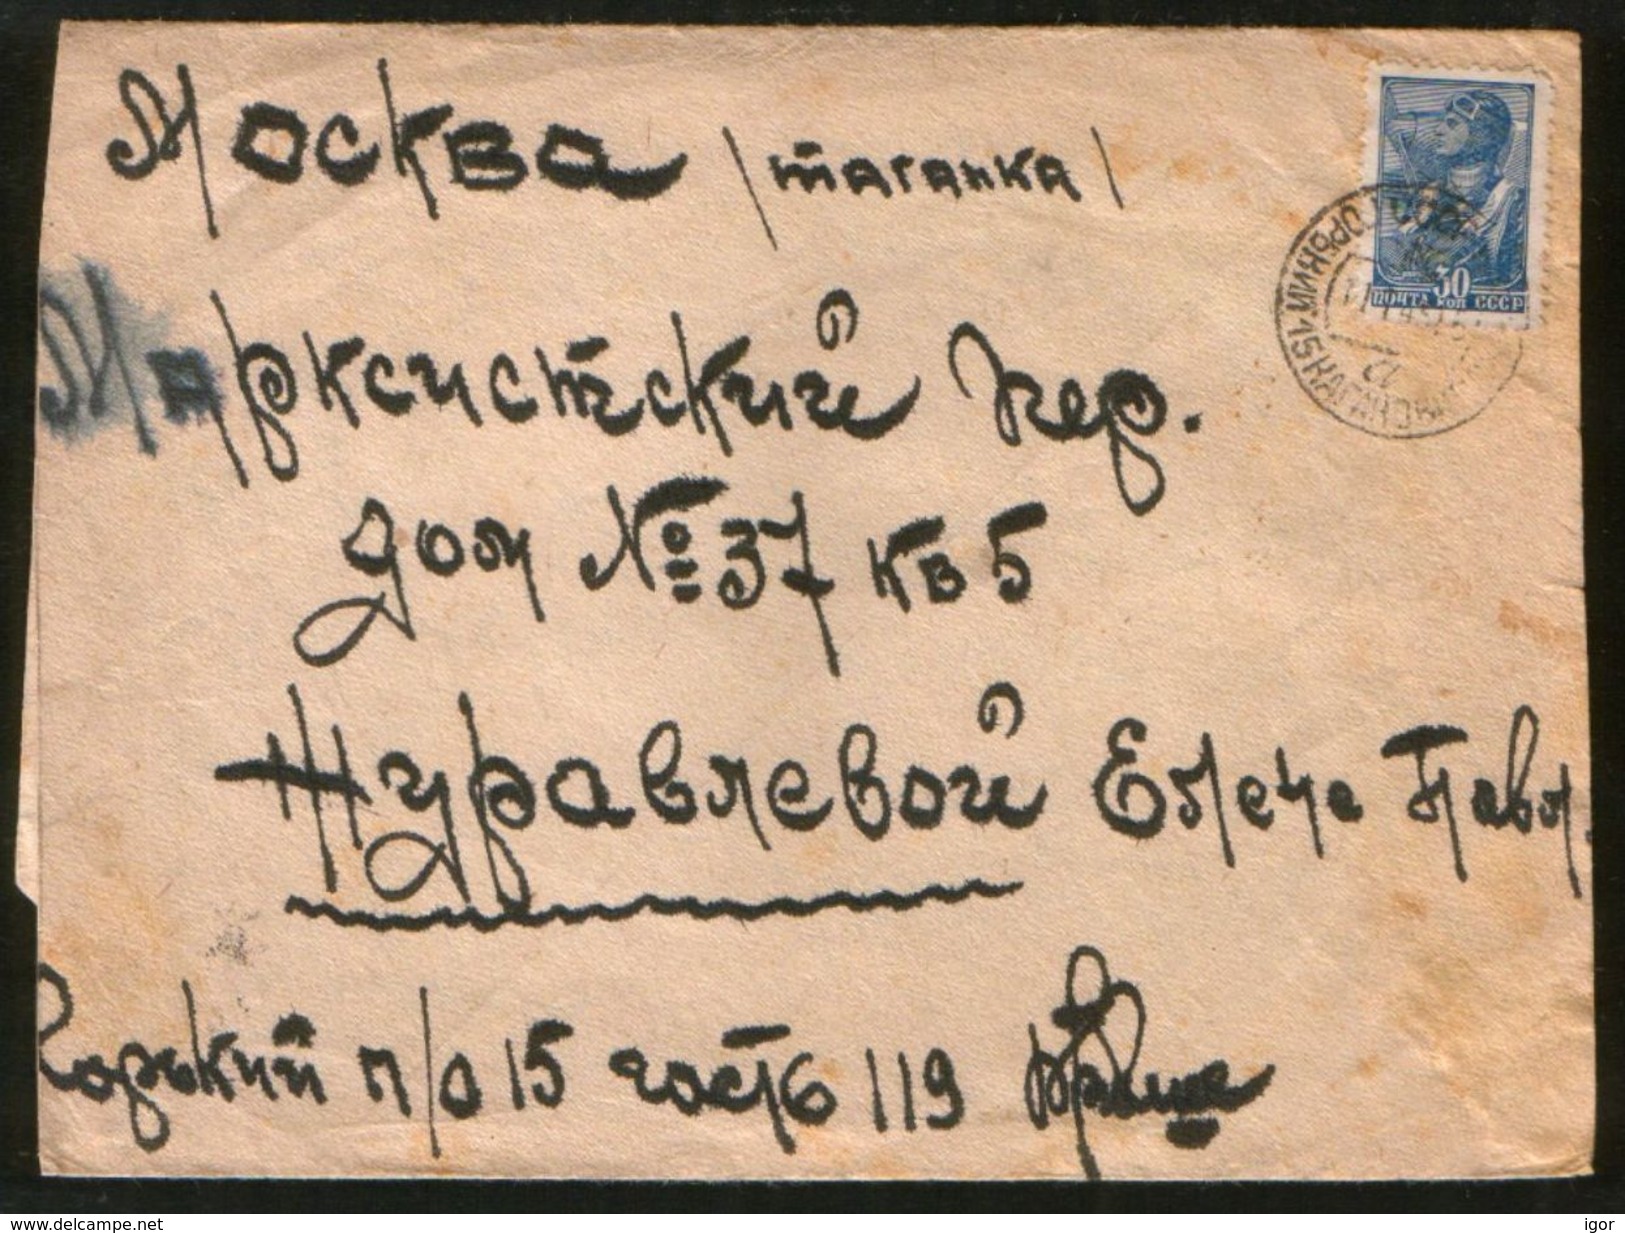 Москва /таганка/
30
ПОЧТА КОП СССР
ГОРЬКИЙ 15
Марксистский пер.
дом № 37 кв 5
Журавлевой Елене Павл.
Горький п/о 15 часть 119
www.delcampe.net
igor